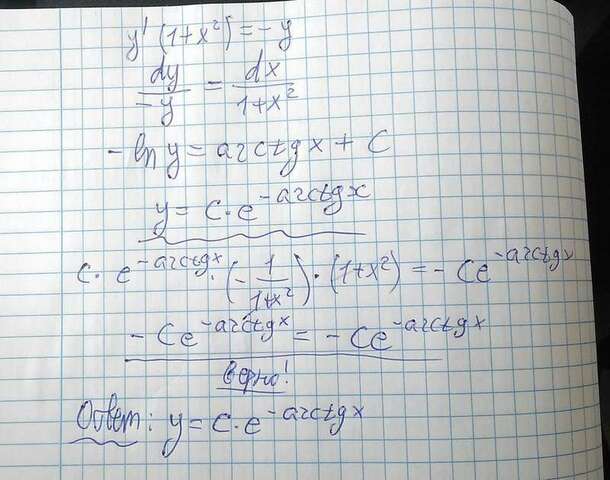 y' (1+x²) = -y
dy/-y = dx/1+x²
- ln y = arctg x + C
y = c · e^-arctg x
c · e^-arctg x · (- 1/1+x²) · (1+x²) = - Ce^-arctg x
- Ce^-arctg x = - Ce^-arctg x
верно!
Ответ: y = c · e^-arctg x